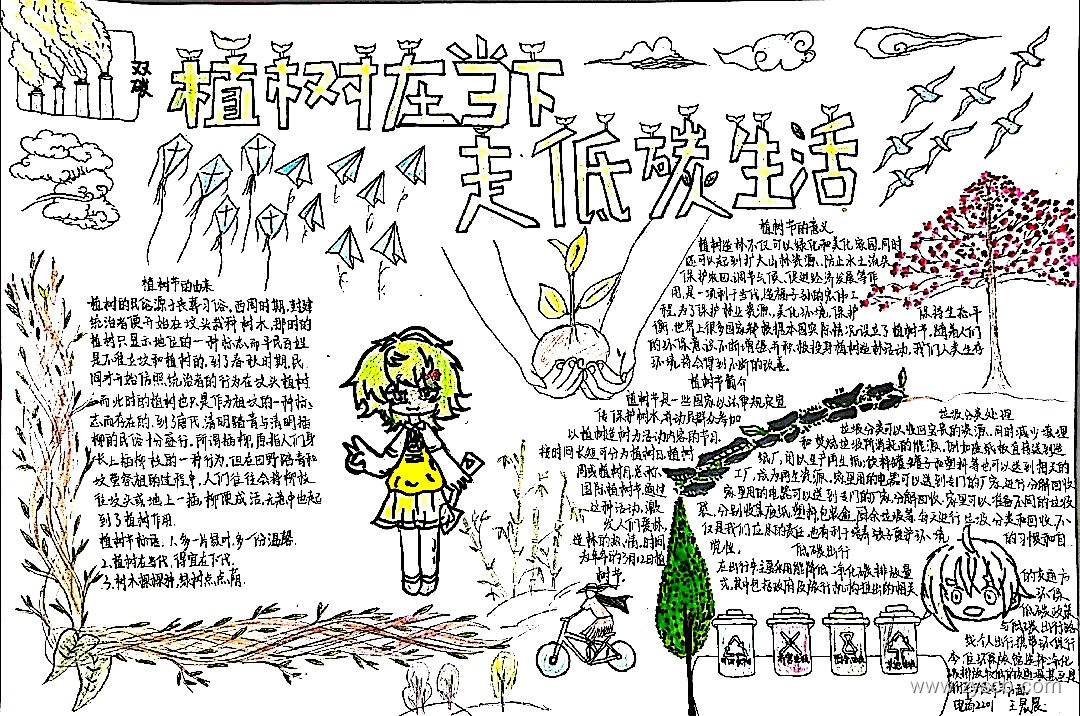 双碳
植树在当下
走低碳生活
植树节的由来
植树的民俗源于丧葬习俗。西周时期,封建
统治者便开始在坟头栽种树木,那时的
植树只显示地位的一种标志,而平民百姓
是不准立坟和植树的。到了春秋时期,民
间才开始仿照统治者的行为在坟头植树
而此时的植树也只是作为祖坟的一种标
志而存在的。到了唐民,清明踏青与清明插
柳的民俗十分盛行。所谓插柳原指人们身
长上插柳枝的一种行为,但在田野踏青和
坟墓祭祖的过程中,人们往往会将柳枝
往坟头或地上一插,柳便成活,无意中也起
到了植树作用。
植树节标语 1.多一片绿叶,多一份温馨
2.植树在当代,得宜在下代
3.树木棵棵种,绿树点点荫
植树节的意义
植树造林不仅可以绿化和美化家园,同时
还可以起到扩大山林资源、防止水土流失
保护农田、调节气候、促进经济发展等作
用,是一项利于当代,造福子孙的宏伟工
程。为了保护林业资源、美化环境,保护 保持生态平
衡,世界上很多国家都根据本国实际情况设立了植树节,随着人们
的环保意识不断增强,并积极投身植树造林活动,我们人类生存
环境将会得到不断的改善。
植树节简介
植树节是一些国家以法律规定宣
传保护树木,并动员群众参加
以植树造树为活动内容的节日。
按时间长短可分为植树日、植树
周或植树月,总称
国际植树节。通过
这种活动,激
发人们爱林
造林的热情。时间
为每年的3月12日植
树节
垃圾分类处理
垃圾分类可以收回宝贵的资源,同时减少填埋
和焚烧垃圾所消耗的能源,例如废纸板直接送到造
纸厂,用以生产再生纸;饮料罐罐子和塑料等也可以送到相关的
工厂,成为再生资源。家里用的电器可以送到专门的厂家,进行分解回收
家里用的电器可以送到专门的厂家,分解回收。家里可以准备不同的垃圾
袋,分别收集废纸、塑料、包装盒、厨余垃圾等。每天进行垃圾分类和回收,不
仅是我们应尽的责任,也有利于培养孩子爱护环境 的习惯和自
觉性。
低碳出行
在出行中,主要采用能降低二氧化碳排放量 的交通方
式,其中包括政府及旅行机构推出的相关 环保
低碳政策
与低碳出行路
线,个人出行携带环保行
电商2201 王晨晨
www.zyscb.com